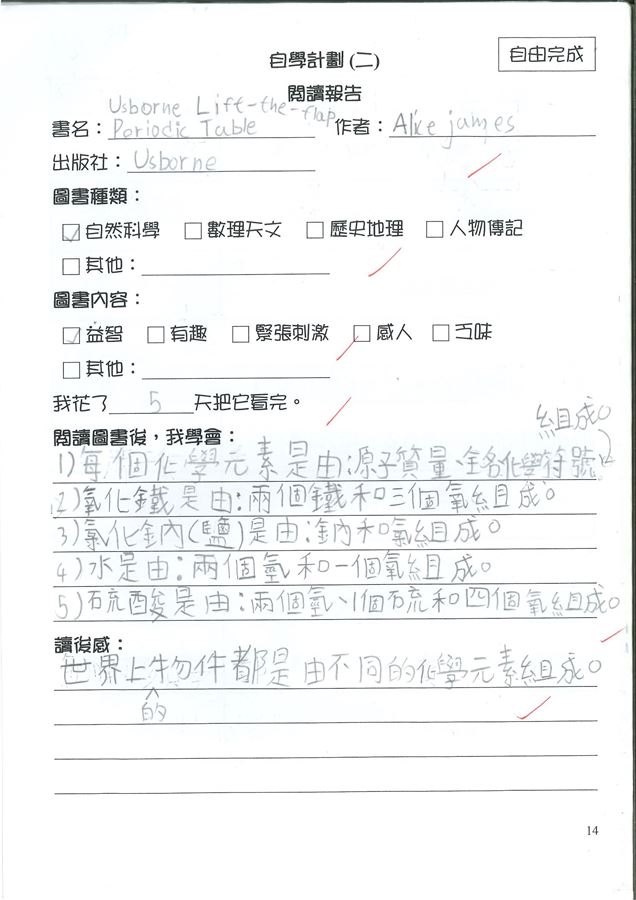 自學計劃(二)
自由完成
閱讀報告
Usborne Lift-the-flap
書名：Periodic Table 作者：Alice james
出版社：Usborne
圖書種類：
☑自然科學 □數理天文 □歷史地理 □人物傳記
□其他：
圖書內容：
☑益智 □有趣 □緊張刺激 □感人 □乏味
□其他：
我花了5天把它看完。
組成。
閱讀圖書後，我學會：
1)每個化學元素是由:源子質量、全名、化學符號
2)氧化鐵是由:兩個鐵和三個氧組成。
3)氯化鈉(鹽)是由:鈉和氯組成。
4)水是由:兩個氫和一個氧組成。
5)硫酸是由:兩個氫、1個硫和四個氧組成。
讀後感：
世界上物件都是由不同的化學元素組成。
的
14